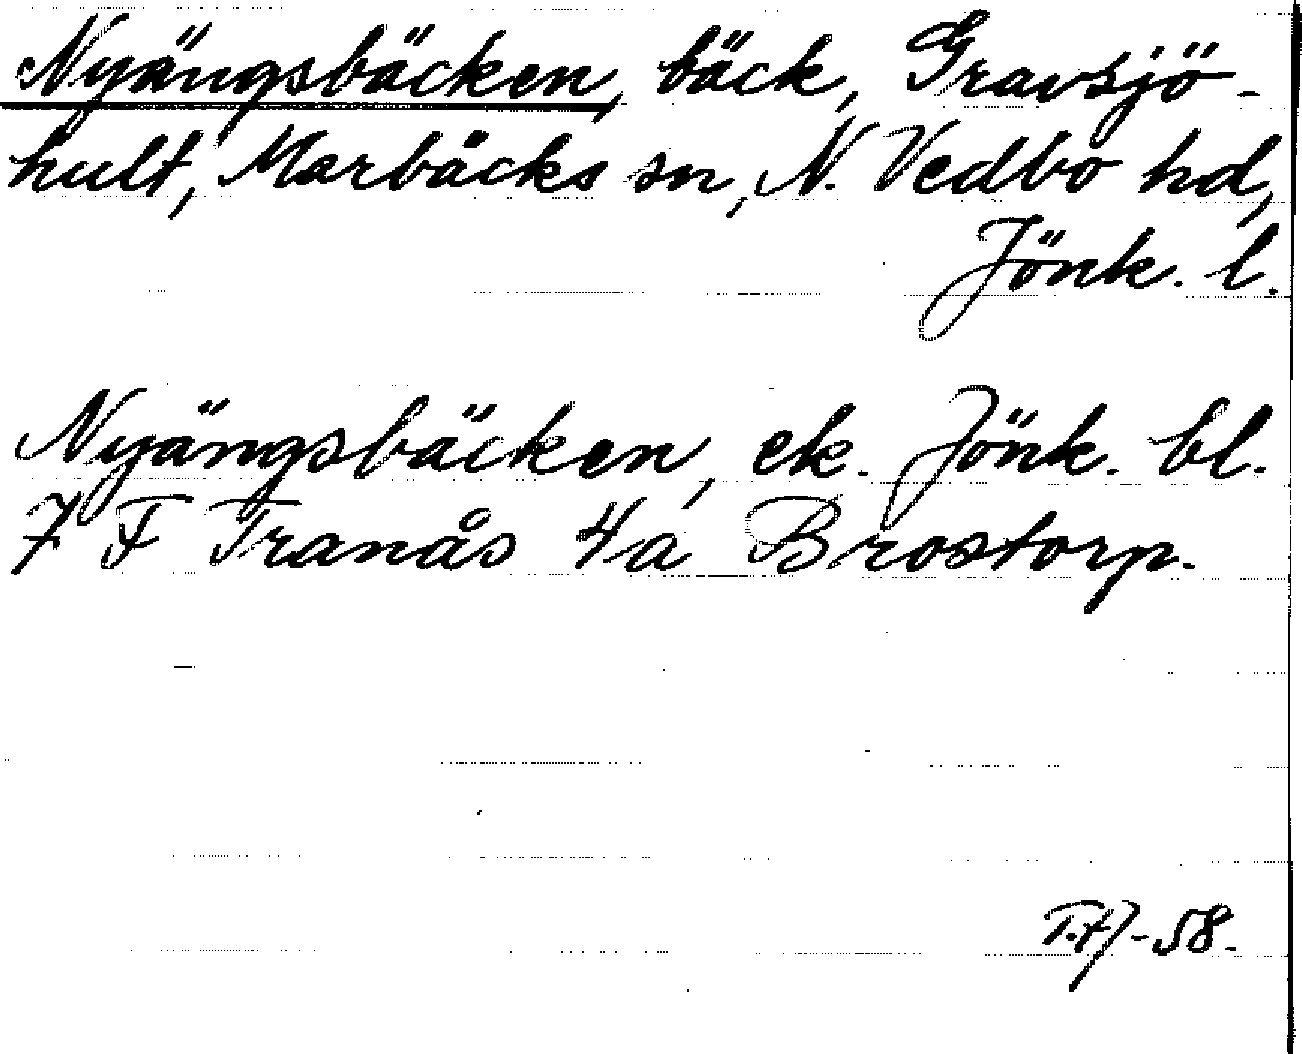 Nyängsbäcken, bäck, Gravsjö-
hult, Marbäcks sn, N. Vedbo hd,
Jönk. l.
Nyängsbäcken, ek. Jönk. bl.
7 F Tranås 4a Brostorp.
-58.